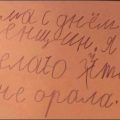 ма с днём
енщин. я
елаю чт
не орала.